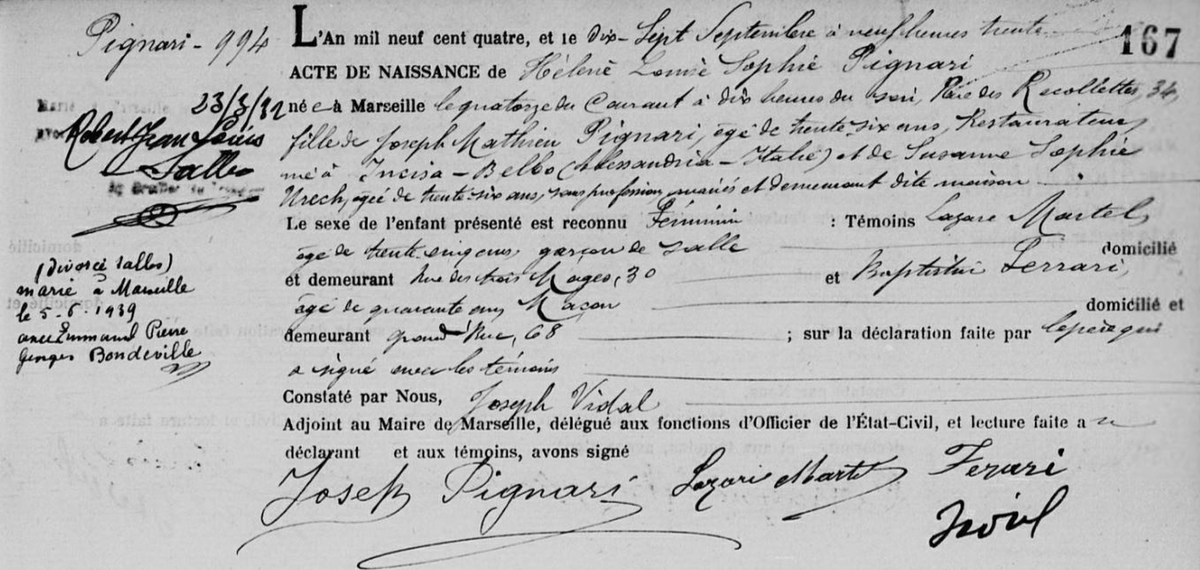 Pignari - 994
167
L'An mil neuf cent quatre, et le dix-sept Septembre à neuf heures trente
ACTE DE NAISSANCE de Hélène Louise Sophie Pignari
née à Marseille le quatorze du Courant à dix heures du soir, Rue des Recollettes, 34,
fille de Joseph Mathieu Pignari, âgé de trente six ans, Restaurateur,
né à Incisa-Belbo (Alessandria-Italie) et de Susanne Sophie
Urech, âgée de trente six ans, sans profession, mariés et demeurant dite maison
Le sexe de l'enfant présenté est reconnu Féminin : Témoins Lazare Martel,
âgé de trente cinq ans, garçon de salle domicilié
et demeurant Rue des trois Mages, 30 et Baptistin Ferrari,
âgé de quarante ans, Maçon domicilié et
demeurant grand Rue, 68 ; sur la déclaration faite par le père qui
a signé avec les témoins
Constaté par Nous, Joseph Vidal
Adjoint au Maire de Marseille, délégué aux fonctions d'Officier de l'État-Civil, et lecture faite au
déclarant et aux témoins, avons signé
Josep Pignari Lazare Martel Ferari
23/3/32
Robert Jean Louis
Salles
(divorcé Salles)
marié à Marseille
le 5-8-1939
avec Emmanuel Pierre
Georges Bondeville